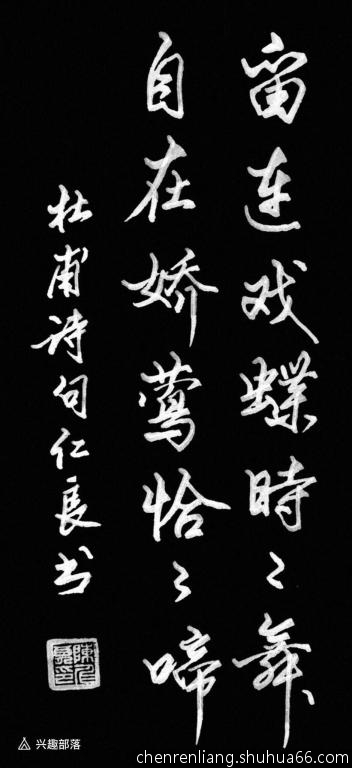 畱连戏蝶時〻舞
自在娇莺恰〻啼
杜甫诗句仁良书
兴趣部落
chenrenliang.shuhua66.com